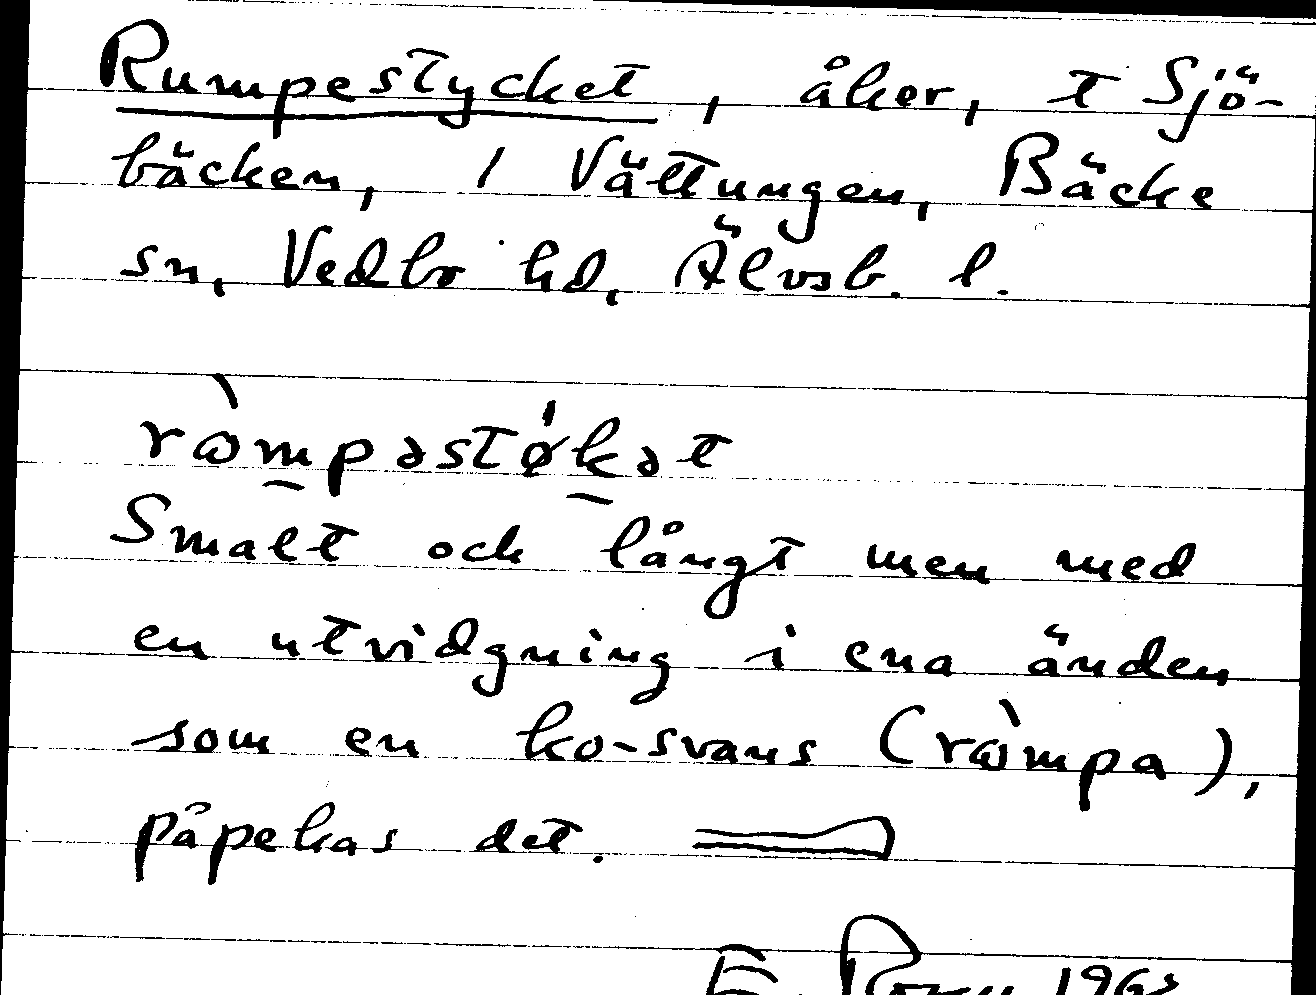 Rumpestycket, åker, t Sjö-
bäcken, 1 Vättungen, Bäcke
sn, Vedbo hd, Älvsb. l.
ròmpəstø̍kət
Smalt och långt men med
en utvidgning i ena änden
som en ko-svans (ròmpa),
påpekas det.
E.